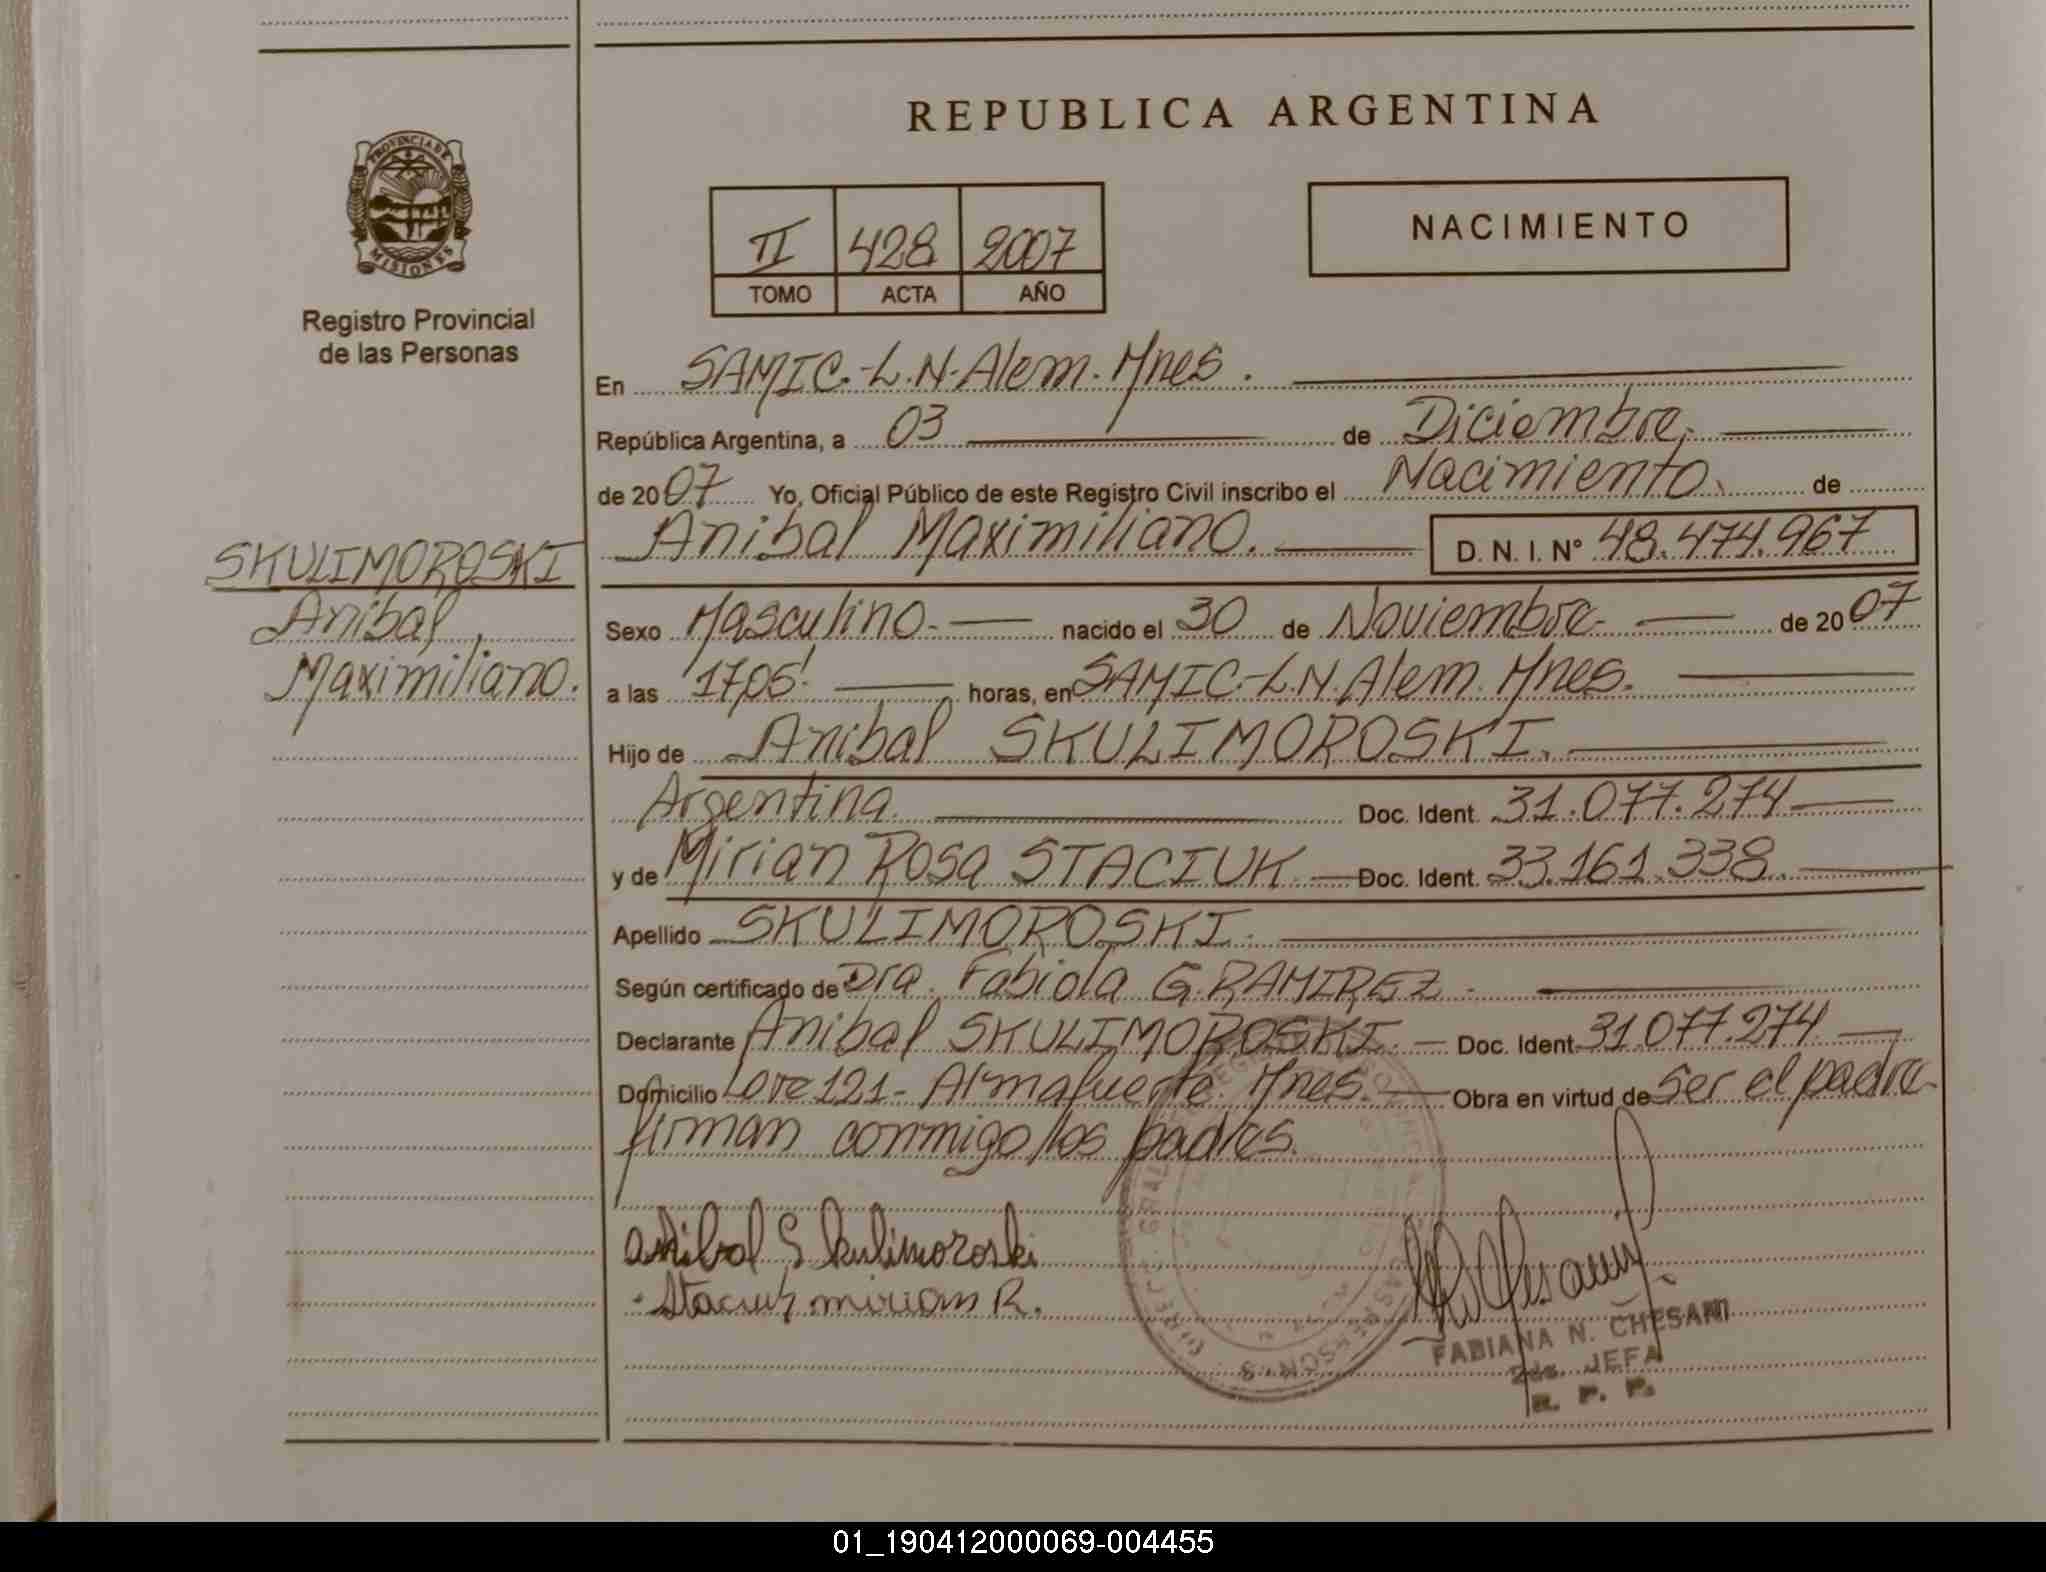 REPUBLICA ARGENTINA
PROVINCIA DE
MISIONES
Registro Provincial
de las Personas
II 428 2007
TOMO ACTA AÑO
NACIMIENTO
En SAMIC.-L.N.Alem.Mnes.
República Argentina, a 03 de Diciembre.
de 2007 Yo, Oficial Público de este Registro Civil inscribo el Nacimiento. de
Anibal Maximiliano. D. N. I. Nº 48.474.967
SKULIMOROSKI
Anibal,
Maximiliano.
Sexo Masculino.- nacido el 30 de Noviembre.- de 2007
a las 1705'. horas, en SAMIC.-L.N.Alem.Mnes.
Hijo de Anibal SKULIMOROSKI.
Argentina. Doc. Ident. 31.077.274
y de Mirian Rosa STACIUK Doc. Ident. 33.161.338.
Apellido SKULIMOROSKI.
Según certificado de Dra. Fabiola G.RAMIREZ.
Declarante Anibal SKULIMOROSKI. Doc. Ident 31.077.274
Domicilio Lote 121- Almafuerte. Mnes. Obra en virtud de Ser el padre
firman conmigo los padres.
anibal Skulimoroski
Staciuk mirian R.
FABIANA N. CHESANI
2da. JEFA
R. P. P.
01_190412000069-004455